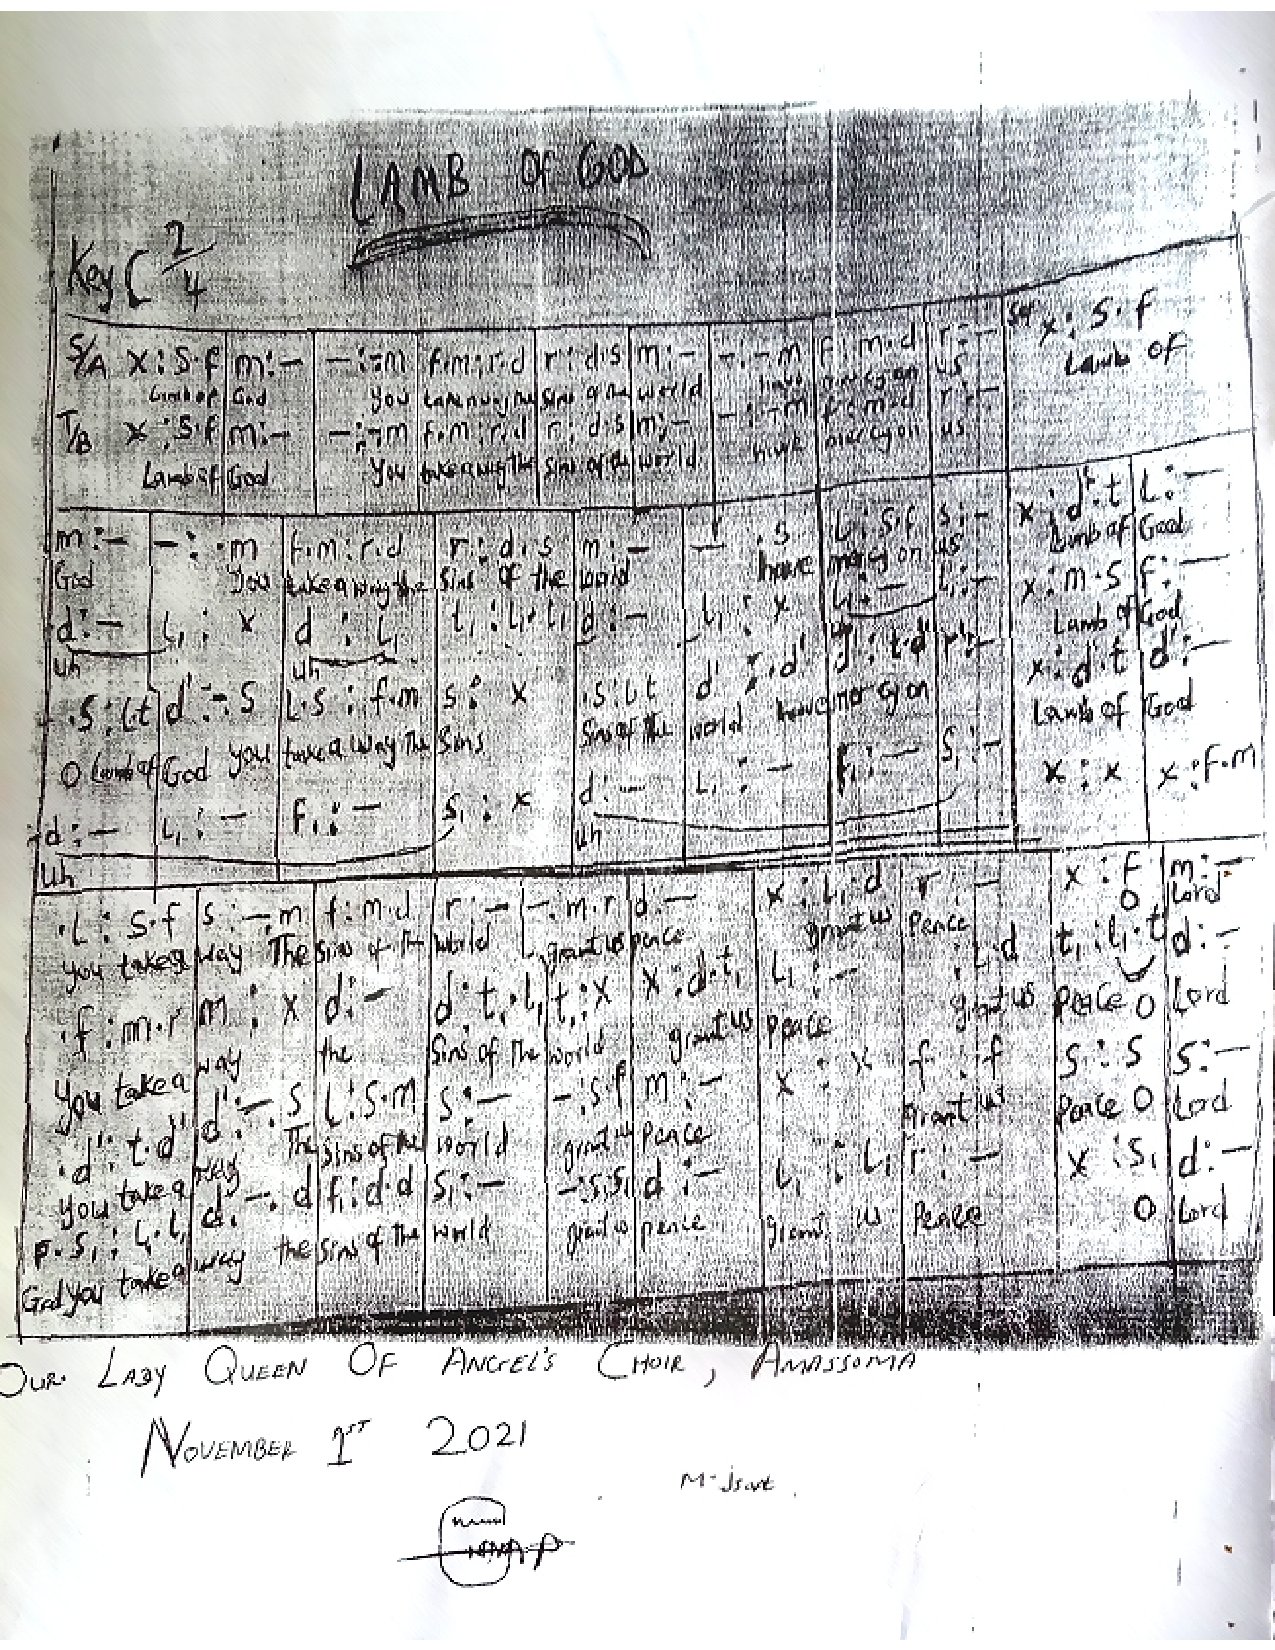 LAMB OF GOD
Key C 2/4
S/A x : s.f | m : – | – : -.m | f.m : r.d | r : d.s | m : – | – . – m | f : m.d | r : – | x : s.f
Lamb of God You take away the sins of the world have mercy on us Lamb of
T/B x : s.f | m : – | – : -.m | f.m : r.d | r : d.s | m : – | – : -.m | f : m.d | r : –
Lamb of God You take away the sins of the world. have mercy on us
m : – | – : .m | f.m : r.d | r : d.s | m : – | – .s | l : s.f | s : – | x : d'.t | l : –
God You take away the sins of the world have mercy on us Lamb of God
d : – | l₁ : x | d : l₁ | t₁ : l₁.t₁ | d : – | l₁ : x | l₁ : – | l₁ : – | x : m.s | f : –
uh uh Lamb of God
.s : l.t | d' : -.s | l.s : f.m | s : x | .s : l.t | d' : .d' | d' : t.d' | r' : – | x : d'.t | d' : –
O Lamb of God you take away the sins sins of the world have mercy on Lamb of God
d : – | l₁ : – | f₁ : – | s₁ : x | d : – | l₁ : – | f₁ : – | s₁ : – | x : x | x : f.m
uh uh
.l : s.f | s : -.m | f : m.d | r : – | – : m.r | d : – | x : l₁.d | r : – | x : f | m : –
you take away The sins of the world grant us peace grant us peace O Lord
.f : m.r | m : x | d : – | d : t₁.l₁ | t₁ : x | x : d.t₁ | l₁ : – | : l.d | t₁ : l₁.t | d : –
You take away the sins of the world grant us peace grant us peace O Lord
.d' : t.d' | d' : -.s | l : s.m | s : – | – : s.f | m : – | x : x | f : f | s : s | s : –
you take away The sins of the world grant us peace grant us peace O Lord
.s₁ : l₁.l₁ | d : -.d | f₁ : d.d | s₁ : – | – : s₁.s₁ | d : – | l₁ : l₁ | r : – | x : s₁ | d : –
God you take away the sins of the world grant us peace grant us Peace O Lord
OUR LADY QUEEN OF ANGEL'S CHOIR, AMASSOMA
NOVEMBER 1ST 2021